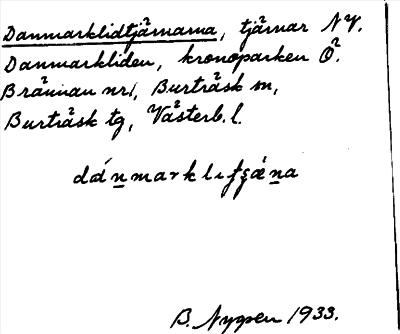 Danmarklidtjärnarna, tjärnar NV.
Danmarkliden, kronoparken Ö.
Brännan nr 1, Burträsk sn,
Burträsk tg, Västerb. l.
B. Nygren 1933.